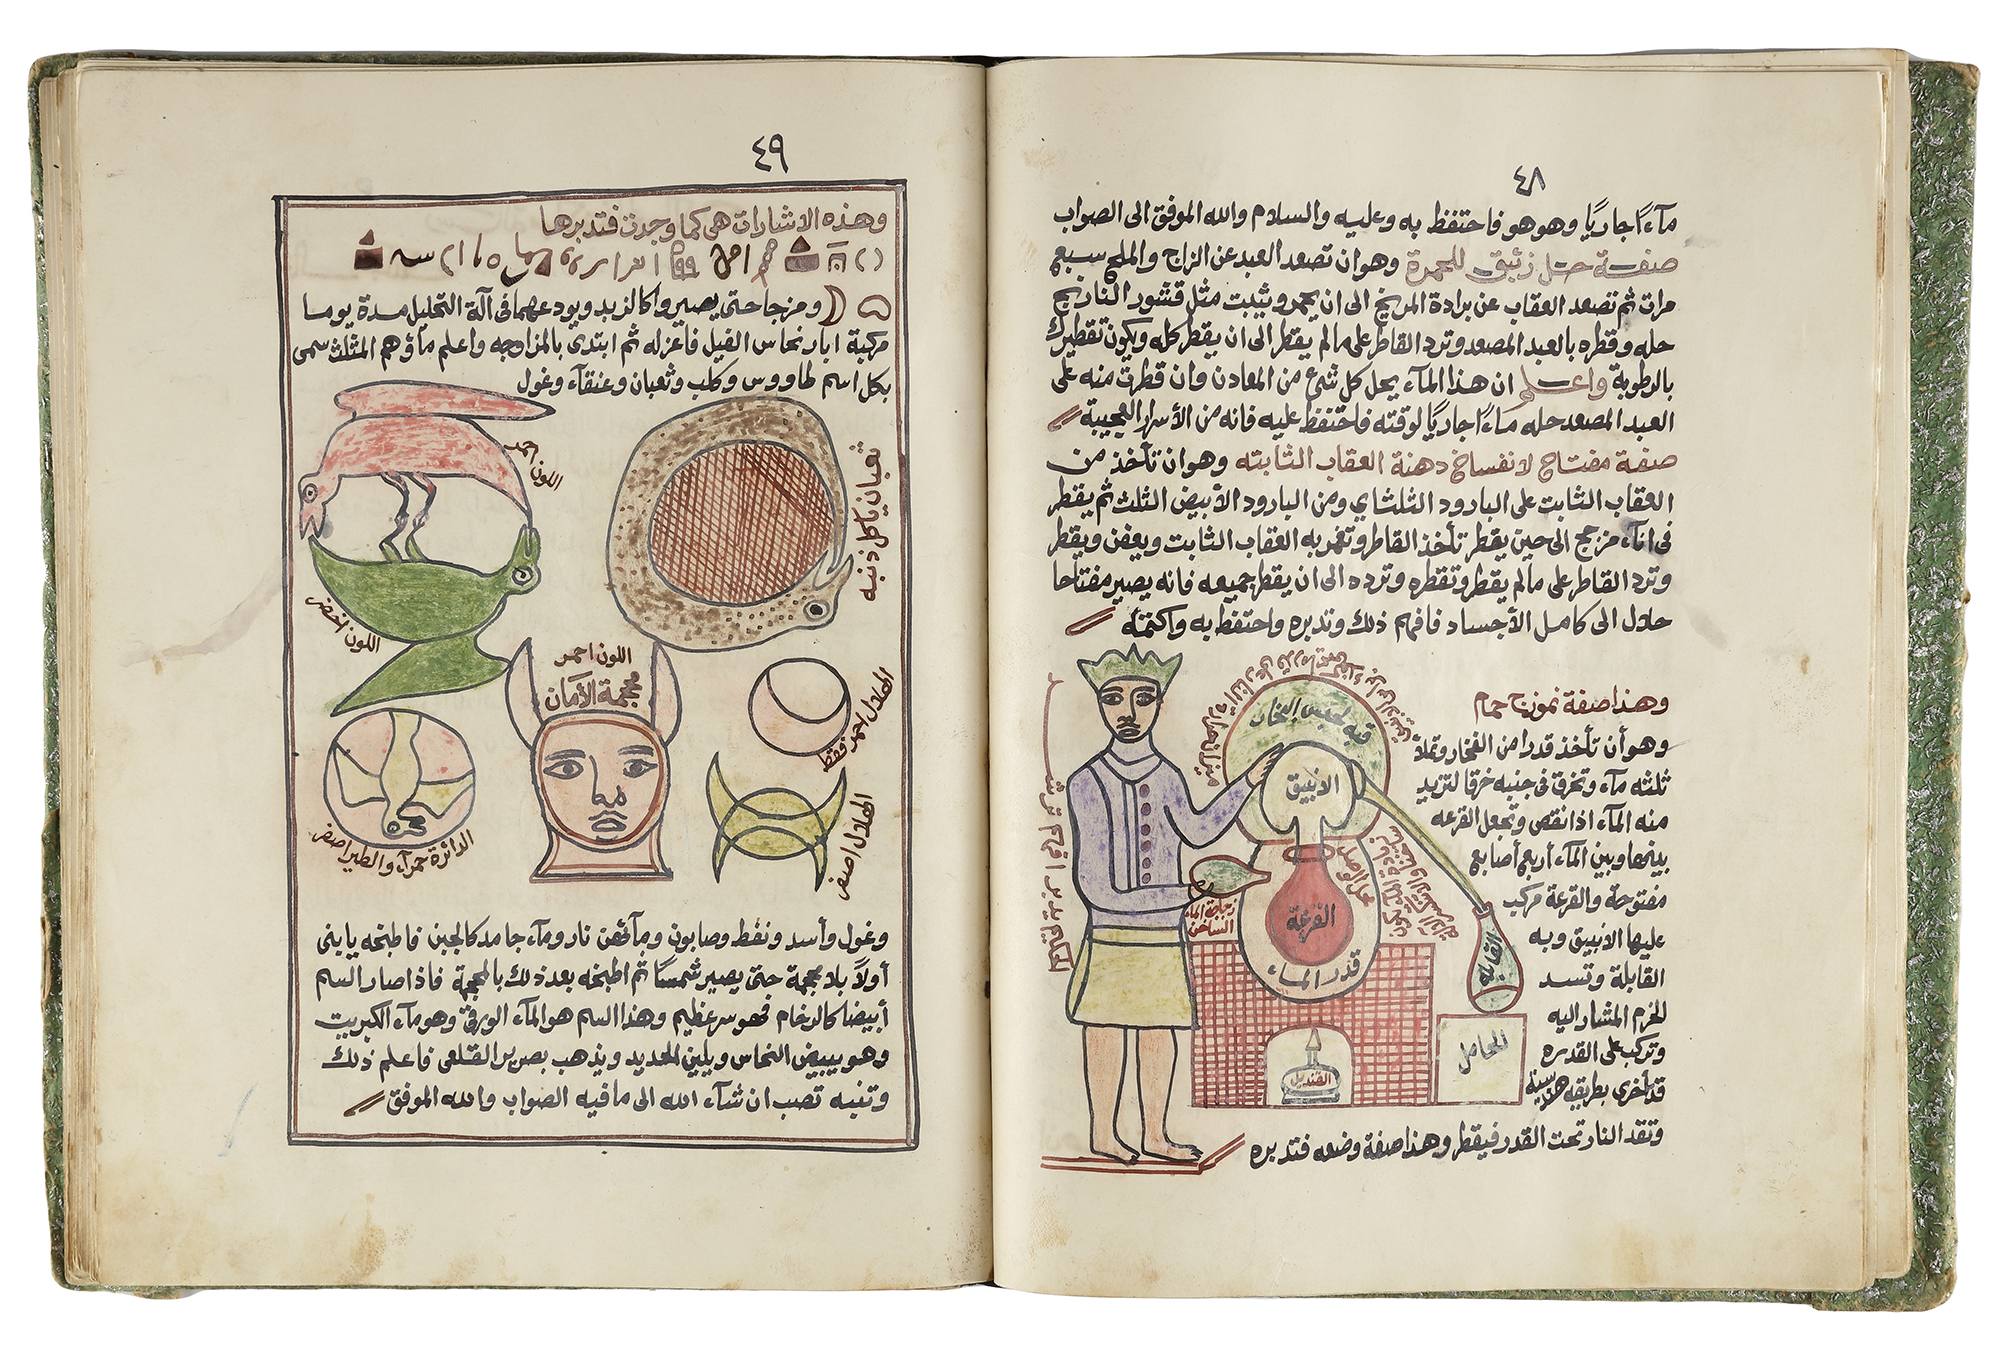 ٤٨
مآءً جاريًا وهو هو فاحتفظ به وعليه والسلام والله الموفق الى الصواب
صفة حل زئبق للحمرة وهو ان تصعد العبد عن الزاج والملح سبع
مرات ثم تصعد العقاب عن برادة المريخ الى ان يحمر ويثبت مثل قشور النارنج
حله وقطره بالعبد المصعد وترد القاطر على مالم يقطر الى ان يقطر كله ويكون تقطيرك
بالرطوبة واعلم ان هذا المآء يحل كل شئ من المعادن وان قطرت منه على
العبد المصعد حله مآءً جاريًا لوقته فاحتفظ عليه فانه من الأسرار العجيبة
صفة مفتاح لانفساخ دهنة العقاب الثابته وهو ان تأخذ من
العقاب الثابت على البارود الثلثاي ومن البارود الأبيض الثلث ثم يقطر
فى انآء مزجج الى حين يقطر تأخذ القاطر وتغمر به العقاب الثابت ويعفن ويقطر
وترد القاطر على مالم يقطر وتقطره وترده الى ان يقطر جميعه فانه يصير مفتاحا
حلال الى كامل الأجساد فافهم ذلك وتدبره واحتفظ به واكتمه
وهذا صفة نموزج حمام
وهو أن تأخذ قدرا من الفخار وتملأ
ثلثه مآء وتخرق فى جنبه خرقا لتزيد
منه المآء اذا نقص وتجعل القرعه
بينها وبين المآء أربع أصابع
مفتوحة والقرعة مركب
عليها الانبيق وبه
القابلة وتسد
الخرم المشار اليه
وتركب على القدره
قدر أخرى بطريقه هندسية
وتقد النار تحت القدر فيقطر وهذا صفة وضعه فتدبره
قبه لحبس البخار
الانبيق
القرعة
قدر الماء
زجاجة الماء
الساخن
القابله
الحامل
القنديل
٤٩
وهذه الاشارات هى كما وجدت فتدبرها
ومزجا حتى يصيروا كالزبد ويودعهما فى آلة التحليل مدة يوما
مركبة ابار نحاس الفيل فاعزله ثم ابتدى بالمزاوجه واعلم مآؤهم المثلث سمى
بكل اسم طاووس وكلب وثعبان وعنقآء وغول
اللون احمر
اللون اخضر
ثعبان ياكل ذنبه
اللون احمر
جمجمة الأمان
الهلال احمر فقط
الهلال اصفر
الدائرة حمرآء والطير اصفر
وغول وأسد ونفط وصابون ومآئهن نار ومآء جامد كالجبن فاطبخه يابنى
أولاً بلا جمجمة حتى يصير شمسًا ثم اطبخه بعد ذلك بالجمجمة فاذا صار السم
أبيضا كالرخام فهو سر عظيم وهذا السم هو المآء الورقى وهو مآء الكبريت
وهو يبيض النحاس ويلين الحديد ويذهب بصرير القلعى فاعلم ذلك
وتنبه تصب ان شآء الله الى ما فيه الصواب والله الموفق